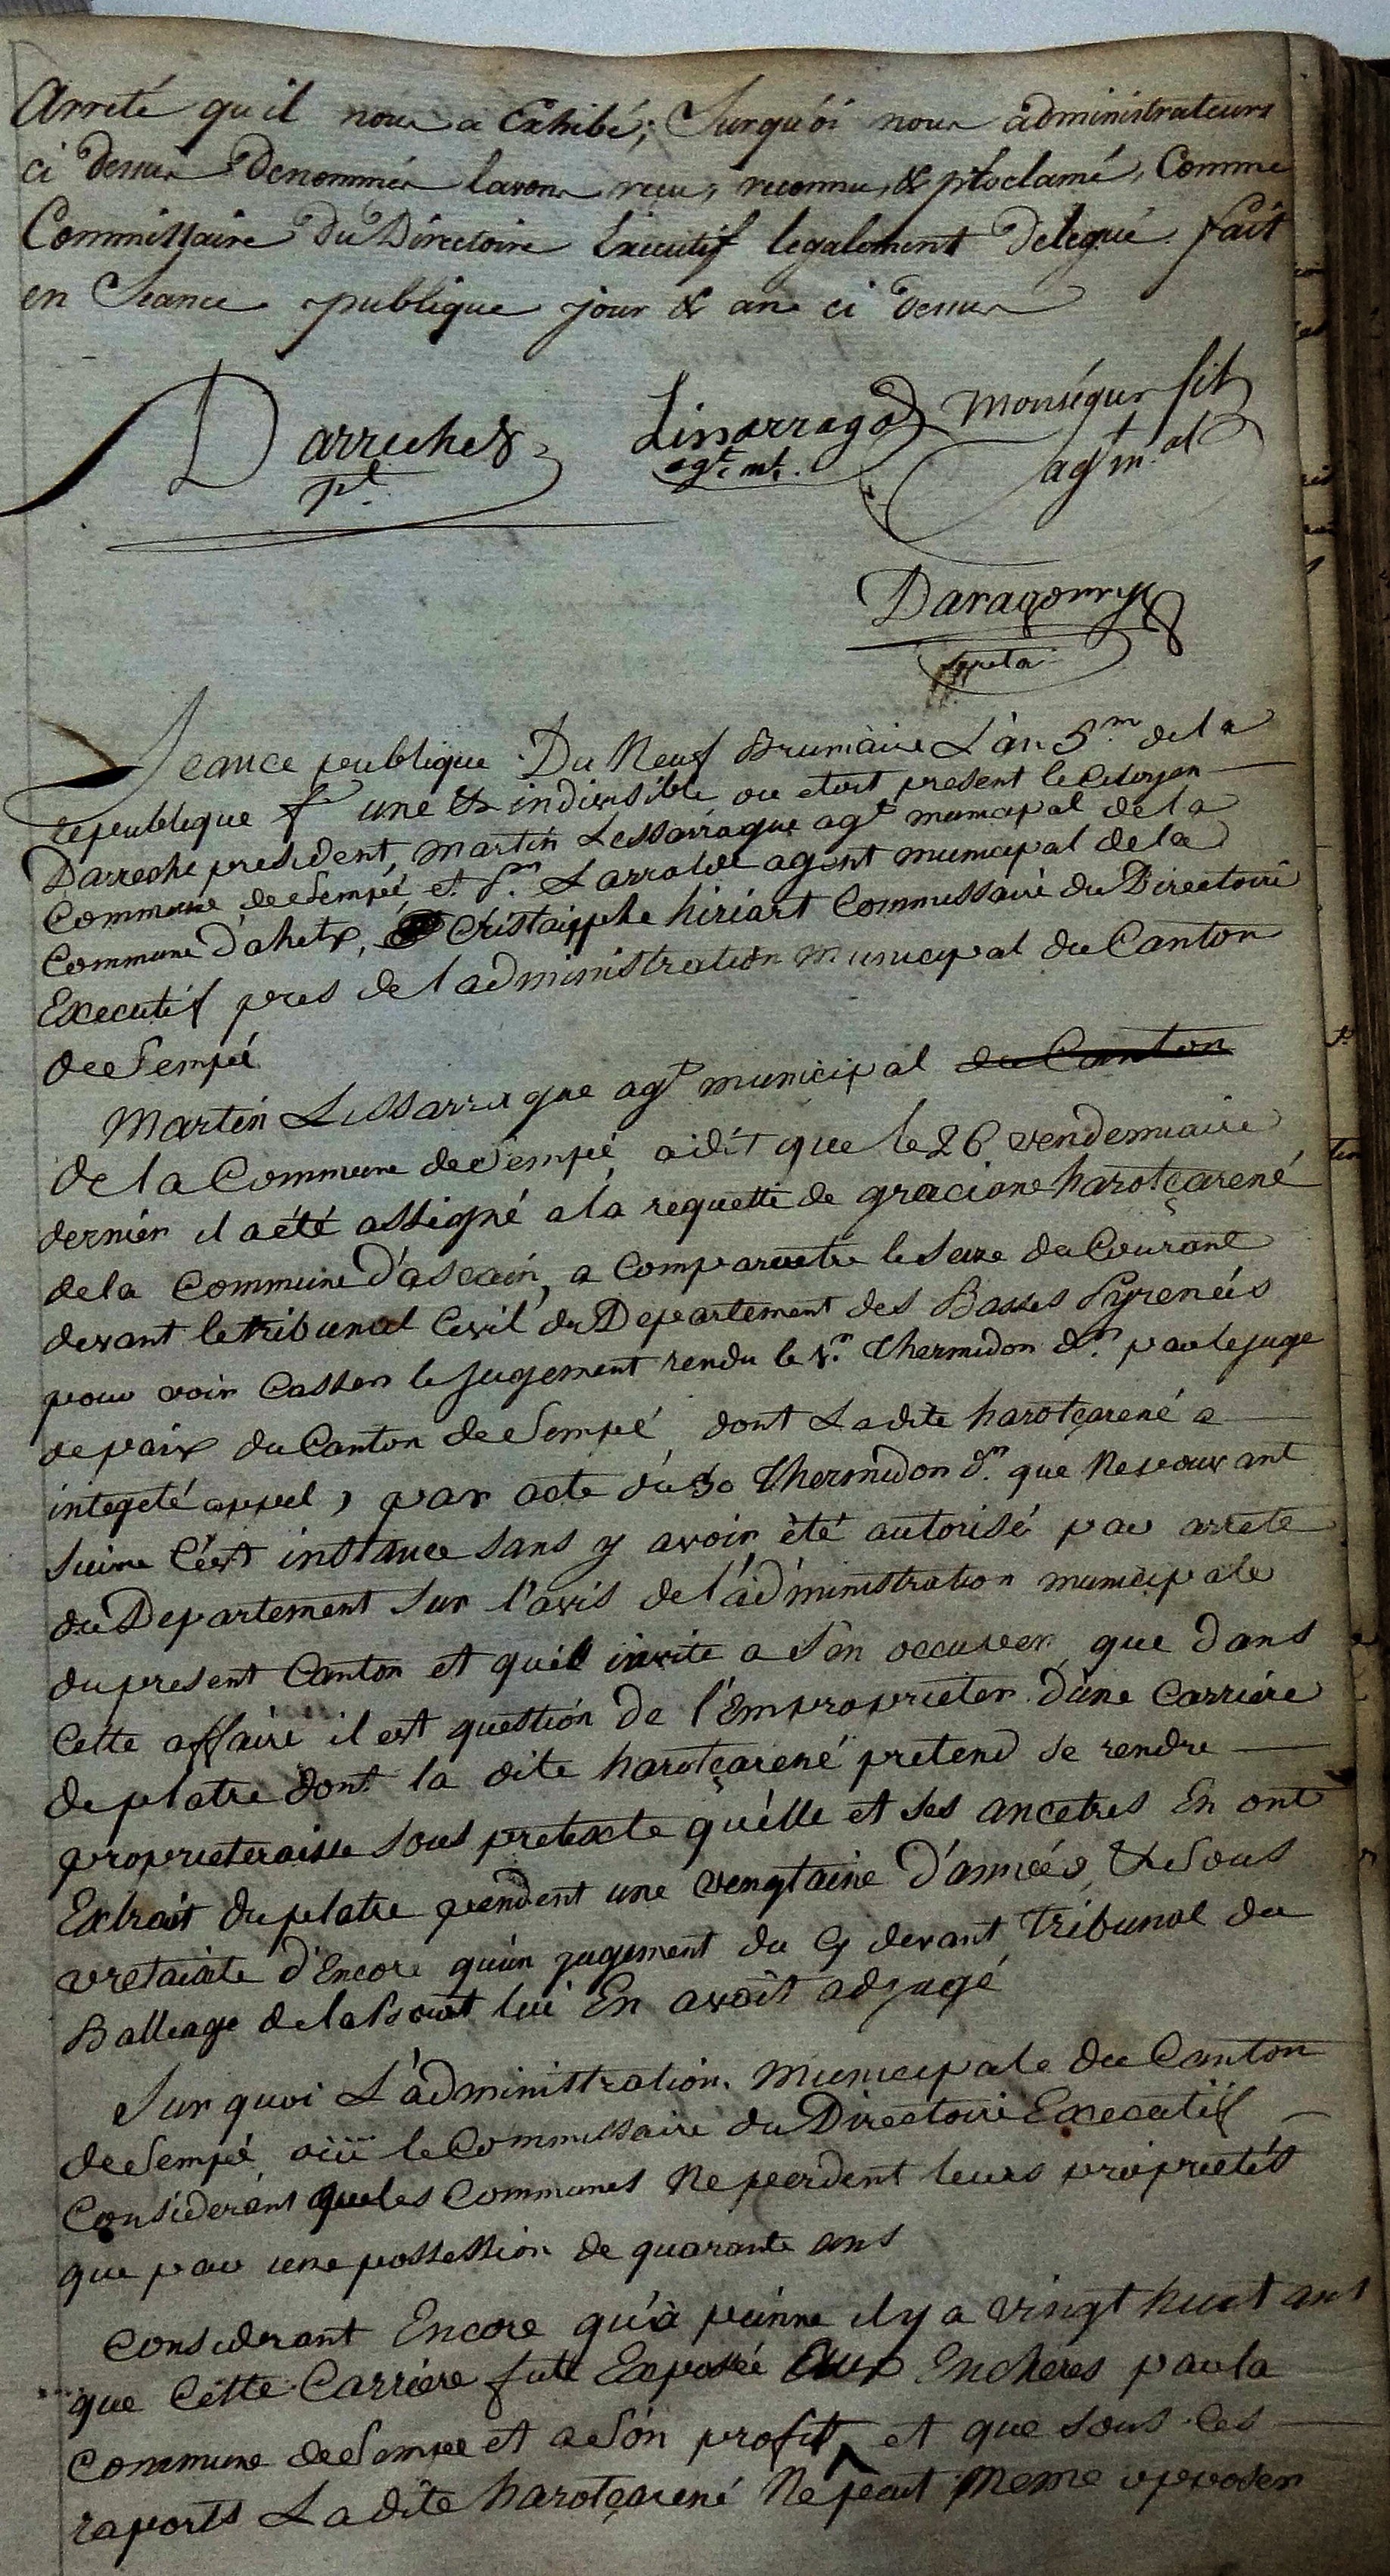 Arreté qu'il nous a Exhibé; Surquoi nous administrateurs
ci dessus Denommés lavons reçu, reconnu, & proclamé, Comme
Commissaire Du Directoire Executif legalement Delegué. fait
en Seance publique jour & an ci dessus
Darreche
pt
agt. ml.
monségur fils
agt m.al
Daragorry
Seance publique Du Neuf Brumaire L'an 5.m de la
republique f une & indivisible ou etoit present le Citoyen
Darreche president, Martin Lessarrague agt municipal de la
Commune de Sempé, et S.n Larralde agent municipal de la
Commune D'ahetz, Cristaipphe hiriart Commissaire du Directoire
Executif pres de l'administration Municipal du Canton
de Sempé
Martin Lessarrague agt municipal du Canton
de la Commune de Sempé, a dit que le 26 vendemiaire
dernier il a été assigné a la requette de graciane harotçarené
de la Commune D'ascain, a Comparoetre le Seize du Courant
devant le tribunal Civil du Departement des Basses Pyrenées
pour voir Casser le Jugement rendu le Thermidor d.r par le juge
de paix du Canton de Sempé, dont Ladite harotçarené a
integeté appel, par acte du 30 Thermidor d.r que Ne pouvant
suivre C'ést instance sans y avoir été autorisé par arrete
du Departement sur l'avis de l'administration municipale
du present Canton et qu'il invite a s'én occuper, que dans
Cette affaire il est question de l'Emproprieter d'une Carriére
de platre dont la dite harotçarené pretend se rendre
proprieteraisse sous pretexte qu'élle et ses ancetres En ont
Extrait du platre pendent une vengtaine d'années, & Sous
vretaixte d'Encore qu'un jugement du Cy devant Tribunal du
Balleage de Labourt lui En avoit adjugé
Sur quoi L'administration Municipale du Canton
de Sempé, oüi le Commissaire du Directoire Executif
Considerant que les Communes Ne perdent leurs proprietés
que par une possession de quarante ans
Considerant Encore qu'à peinne il y a vingt huit ans
que Cette Carriere fut Exposée Aux Encheres par la
Commune de Sempé et a Son profit, et que sous ces
raports Ladite harotçarené Ne peut meme opposer